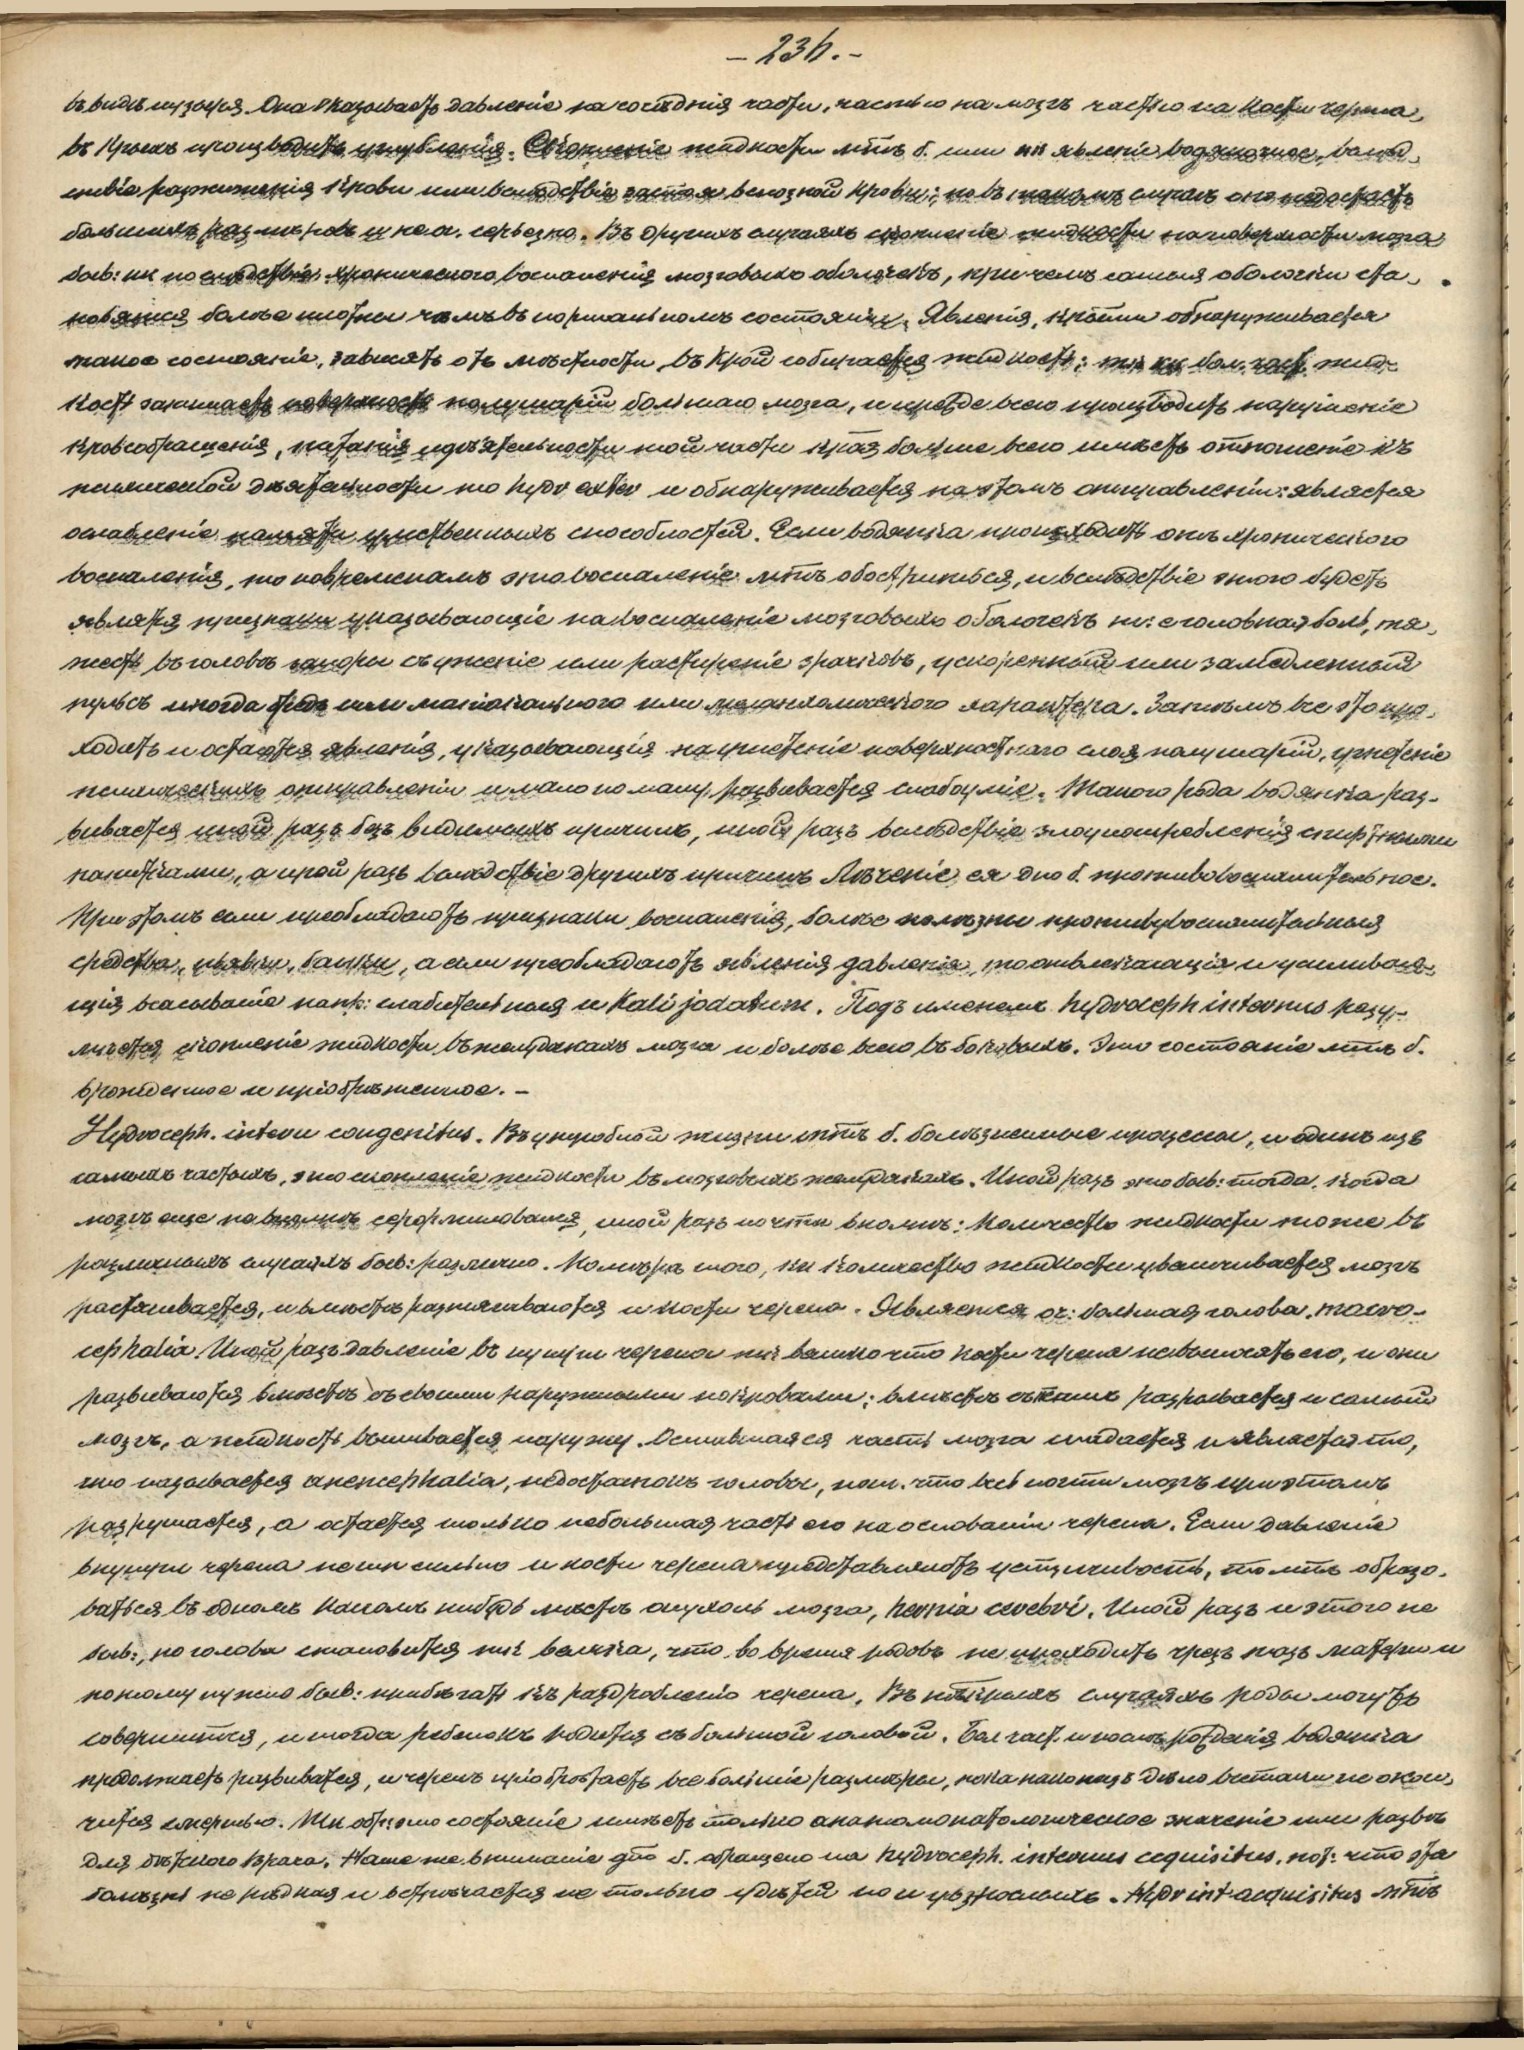 – 236. –
въ видѣ пузыря. Она оказываетъ давленіе на сосѣднія части, частью на мозгъ частью на кости черепа,
въ крыхъ производитъ углубленія. Скопленіе жидкости мтъ б. или как явленіе водяночное, вслѣд-
ствіе разжиженія крови или вслѣдствіе застоя венозной крови; но въ такомъ случаѣ оно недостаетъ
большихъ размѣровъ и не а. серьезно. Въ другихъ случаяхъ скопленіе жидкости на поверхности мозга
быв: как послѣдствіе хроническаго воспаленія мозговыхъ оболочекъ, при чемъ самыя оболочки ста-
новятся болѣе плотны чѣмъ въ нормальномъ состояніи. Явленія, крыми обнаруживается
такое состояніе, зависятъ отъ мѣстности въ крой собирается жидкость; бол. част. жид-
кость занимаетъ поверхность полушарій большаго мозга, и прежде всего производитъ нарушеніе
кровеобращенія, питанія и дѣятельности той части края больше всего имѣетъ отношеніе къ
психической дѣятельности то hydr exter и обнаруживается на этомъ отправленіи: является
ослабленіе памяти умственныхъ способностей. Если водянка происходитъ отъ хроническаго
воспаленія, то повременамъ это воспаленіе мтъ обостриться, и вслѣдствіе этого будетъ
являтся признаки указывающіе на воспаленіе мозговыхъ оболочекъ н: е головная боль, тя-
жесть въ головѣ запоры съуженіе или расширеніе зрачковъ, ускоренный или замедленный
пульсъ иногда бредъ или маніакальнаго или меланхолическаго характера. Затѣмъ все это про-
ходитъ и остаются явленія, указывающія на угнетеніе поверхностнаго слоя полушарій, угнетеніе
психическихъ отправленій и мало по малу развивается слабоуміе. Такого рода водянка раз-
вивается иной разъ безъ видимыхъ причинъ, иной разъ вслѣдствіе злоупотребленія спиртными
напитками, а иной разъ вслѣдствіе другихъ причинъ Лѣченіе ея дно б. противовоспалительное.
При этомъ если преобладаютъ признаки воспаленія, болѣе полезны противувоспалительныя
средства, піявки, банки, а если преобладаютъ явленія давленія, то отвлекающія и усиливаю-
щія всасываніе напр: слабительныя и Kali jodatum. Подъ именемъ hydroceph internus разу-
мѣется скопленіе жидкости въ желудкахъ мозга и болѣе всего въ боковыхъ. Это состояніе мтъ б.
врожденное и пріобрѣтенное. –
Hydroceph. intern congenitus. Въ утробной жизни мтъ б. болѣзненные процессы, и одинъ изъ
самыхъ частыхъ, это скопленіе жидкости въ мозговыхъ желудкахъ. Иной разъ это быв: тогда, когда
мозгъ еще не вполнѣ сформировался, иной разъ почти вполнѣ: Количество жидкости тоже въ
различныхъ случаяхъ быв: различно. По мѣрѣ того, как количество жидкости увеличивается мозгъ
растягивается, и вмѣстѣ растягиваются и кости черепа. Является оч: большая голова, macro-
cephalia. Иной разъ давленіе въ нутри черепа так велико что кости черепа не выносятъ его, и они
разрываются вмѣстѣ съ своими наружными покровами; вмѣстѣ съ тѣмъ разрывается и самый
мозгъ, а жидкость выливается наружу. Оставшаяся часть мозга спадается и является то,
что называется anencephalia, недостатокъ головы, пот. что весь почти мозгъ при этомъ
разрушается, а остается только небольшая часть его на основаніи черепа. Если давленіе
внутри черепа не так сильно и кости черепа представляютъ устойчивость, то мтъ образо-
ваться въ одномъ какомъ нибудь мѣстѣ опухоль мозга, hernia cerebri. Иной разъ и этого не
быв:, но голова становится так велика, что во время родовъ не проходитъ чрезъ тазъ матери и
потому нужно быв: прибѣгать къ раздробленію черепа. Въ нѣкрыхъ случаяхъ роды могутъ
совершиться, и тогда ребенокъ родится съ большой головой. Бол част. и послѣ рожденія водянка
продолжаетъ развиватся, и черепъ пріобрѣтаетъ все большіе размѣры, пока наконецъ дѣло не окон-
чится смертью. Так обр: это состояніе имѣетъ только анатомопатологическое значеніе или развѣ
для дѣтскаго врача. Наше же вниманіе дно б. обращено на hydroceph. internus acquisitus, пот: что эта
болѣзнь не рѣдкая и встрѣчается не только у дѣтей но и у взрослыхъ. Hydr int acquisitus мтъ